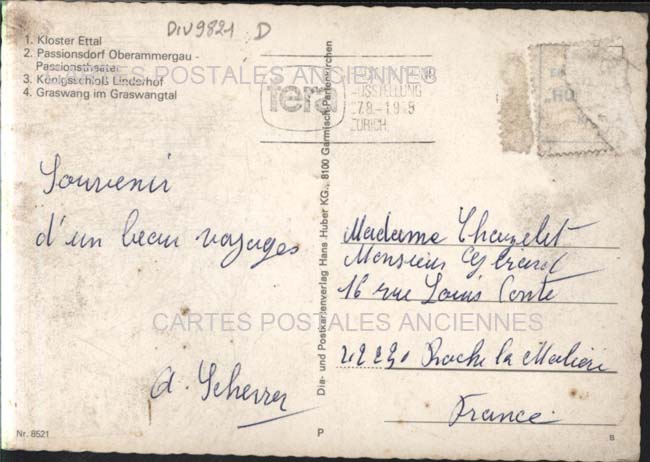 DIV9821 D
1. Kloster Ettal
2. Passionsdorf Oberammergau -
Passionstheater
3. Königsschloß Linderhof
4. Graswang im Graswangtal
CARTES POSTALES ANCIENNES
fera
AUSSTELLUNG
ZÜRICH
Souvenir
d'un beau voyages
A. Scherrer
Dia- und Postkartenverlag Hans Huber KG., 8100 Garmisch-Partenkirchen
Madame Chazelet
Monsieur
16 rue Louis Conte
42230 Roche la Molière
France
CARTES POSTALES ANCIENNES
Nr. 8521
P
B